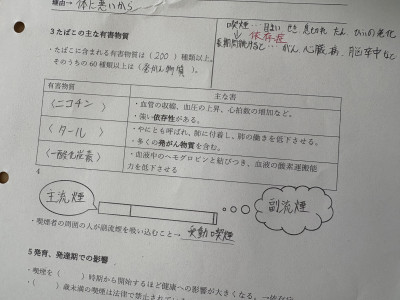 理由→体に悪いから
喫煙…めまい せき 息切れ たん
↓→依存症
長期間続けると…がん、心臓病、脳卒中など
3たばこの主な有害物質
・たばこに含まれる有害物質は(200)種類以上。
そのうちの60種類以上は(発がん物質)。
有害物質 主な害
(ニコチン) ・血管の収縮、血圧の上昇、心拍数の増加など。
・強い依存性がある。
(タール) ・やにとも呼ばれ、肺に付着し、肺の働きを低下させる。
・多くの発がん物質を含む。
(一酸化炭素) ・血液中のヘモグロビンと結びつき、血液の酸素運搬能
力を低下させる
4
主流煙 副流煙
・喫煙者の周囲の人が副流煙を吸い込むこと→受動喫煙
5発育、発達期での影響
・喫煙を( )時期から開始するほど健康への影響が大きくなる。→依存症
・( )歳未満の喫煙は法律で禁止されてい